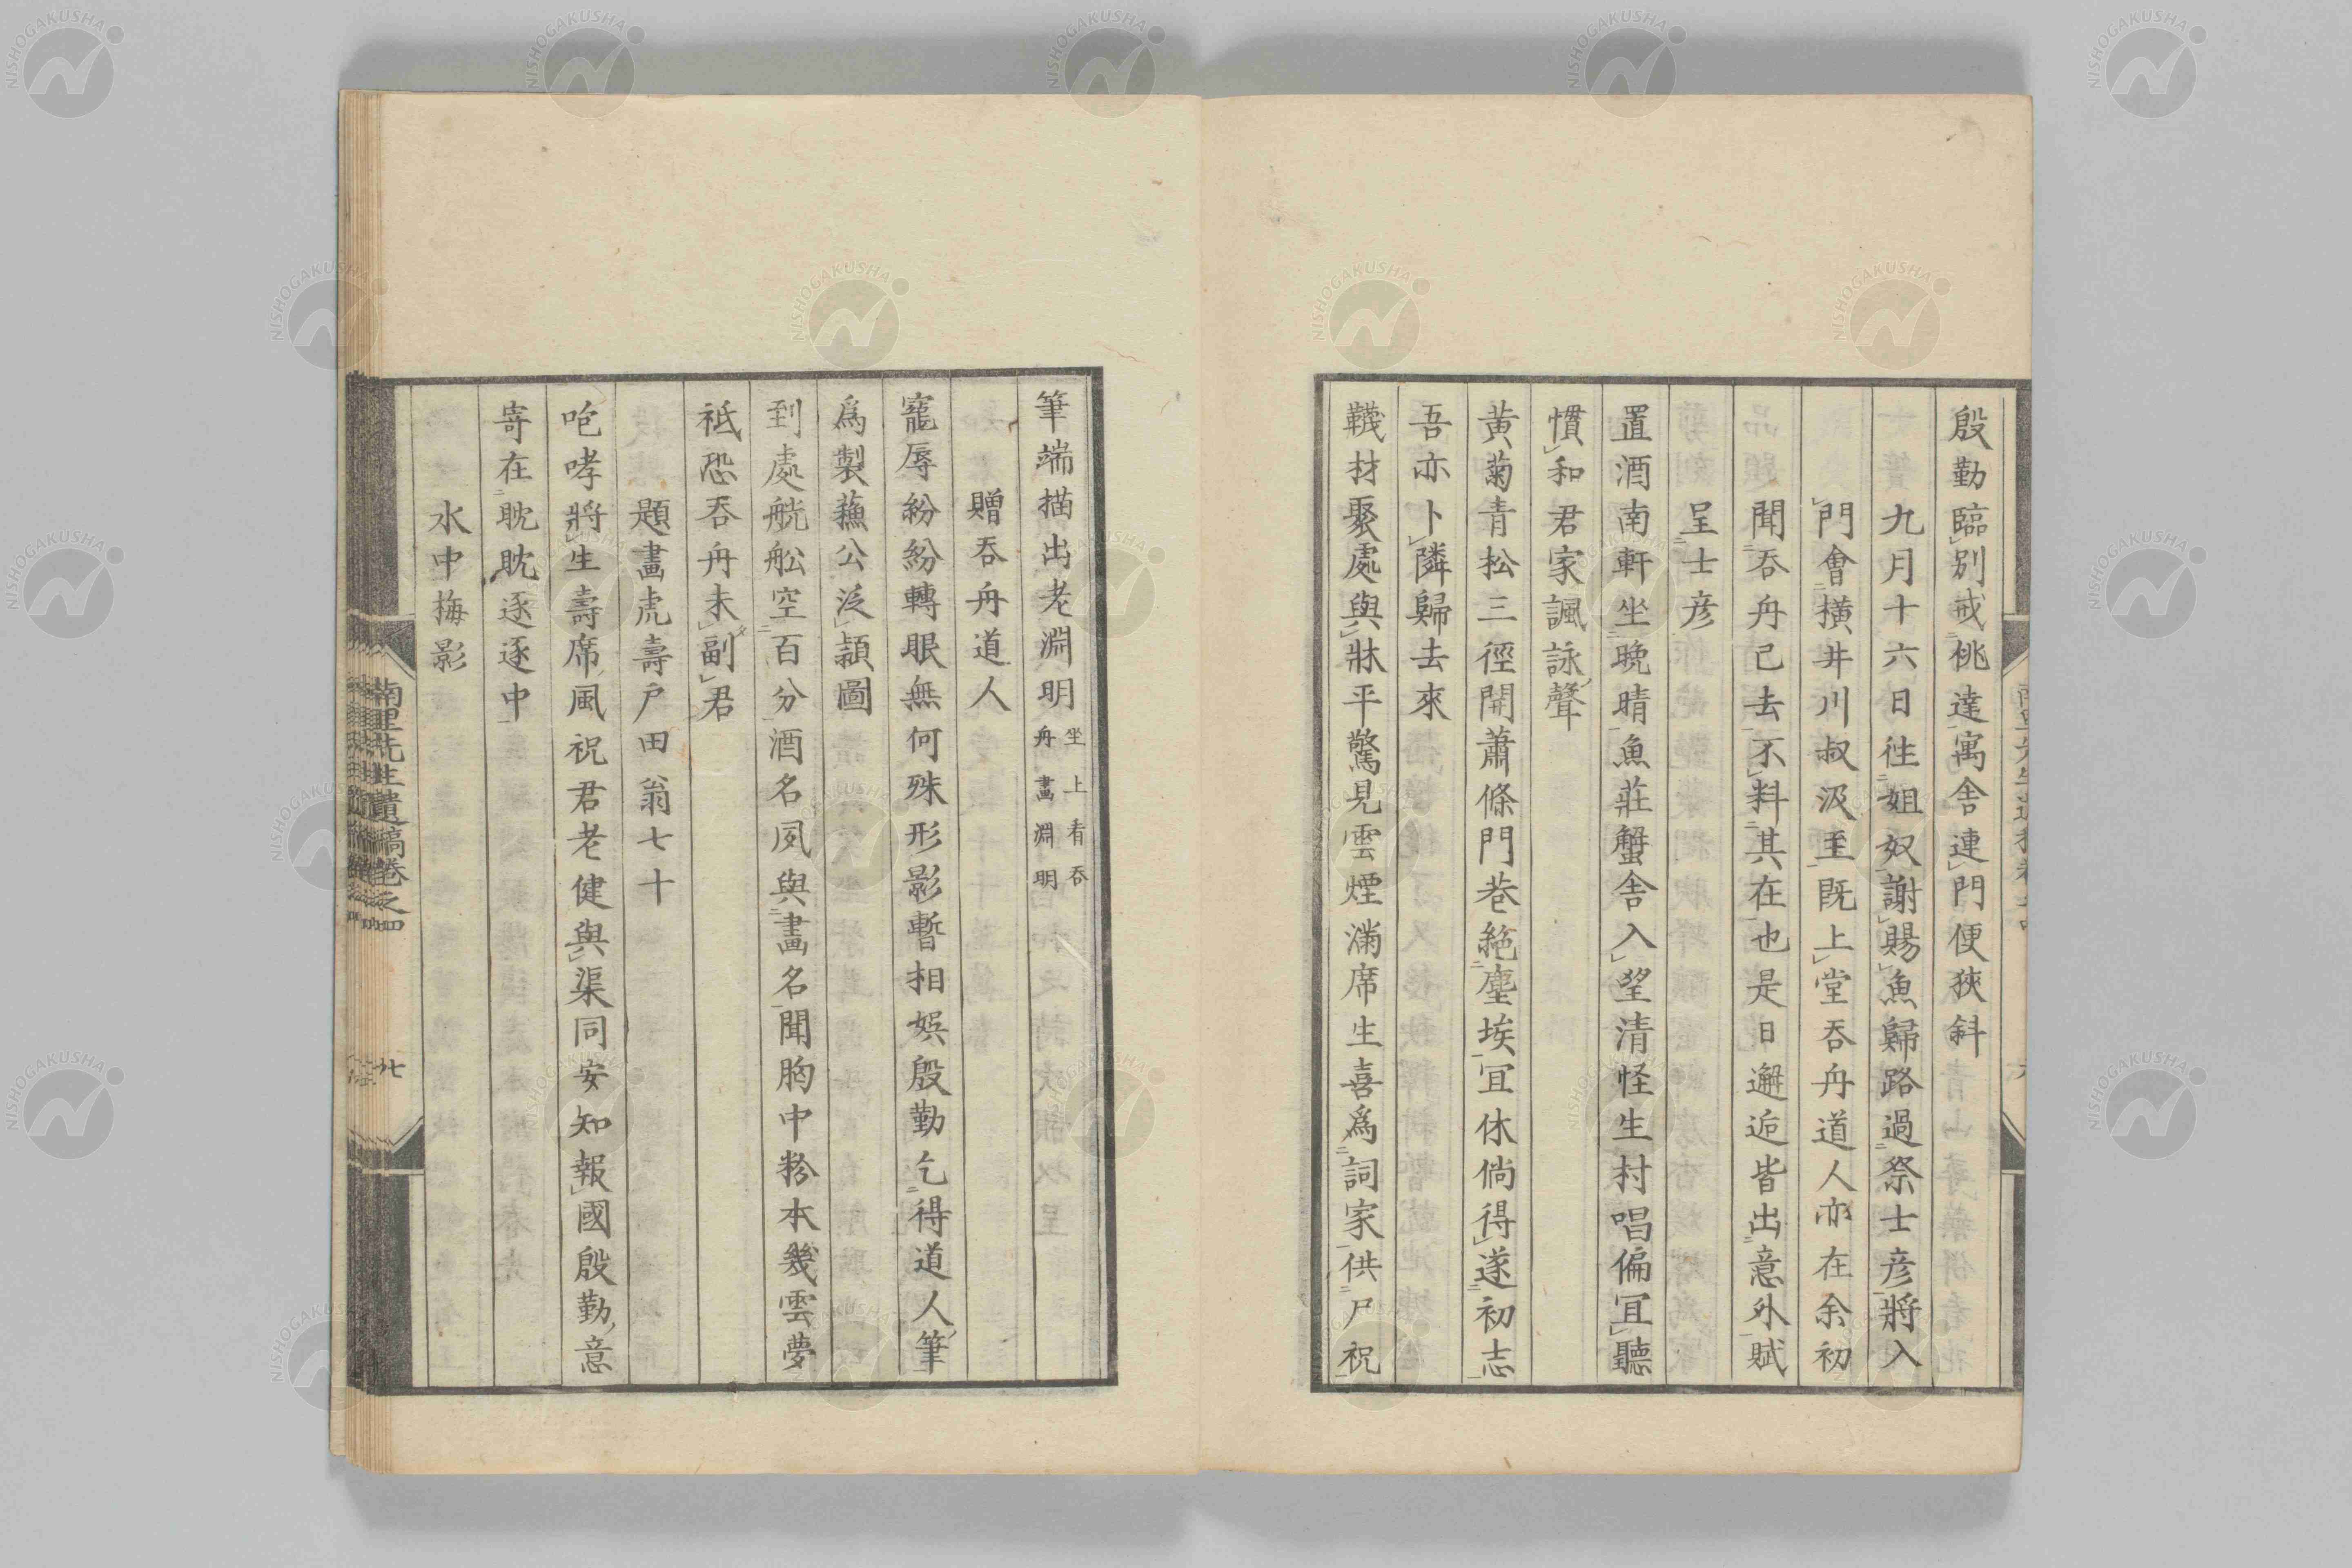 殷勤臨別戒桃達寓舎連門便狹斜
九月十六日徃姐奴謝賜魚歸路過祭士彦將入
門會橫井川叔汲至既上堂呑舟道人亦在余初
聞呑舟己去不料其在也是日邂逅皆出意外賦
呈士彦
置酒南軒坐晩晴魚莊蟹舎入望清怪生村唱偏冝聽
慣和君家諷詠聲
黄菊青松三徑開蕭條門巷絶塵埃冝休倘得遂初志
吾亦卜隣歸去來
韈材聚處與牀平驚見雲煙滿席生喜爲詞家供尸祝
筆端描出老淵明坐上看呑舟畫淵明
贈呑舟道人
寵辱紛紛轉眼無何殊形影暫相娯殷勤乞得道人筆
爲製蘓公泛頴圖
到處觥舩空百分酒名夙與畫名聞胸中粉本幾雲夢
祗恐呑舟未副君
題畫虎壽戸田翁七十
咆哮將生壽席風祝君老健與渠同安知報國殷勤意
寄在耽耽逐逐中
水中梅影
南里先生遺稿卷之四
廿
NISHOGAKUSHA